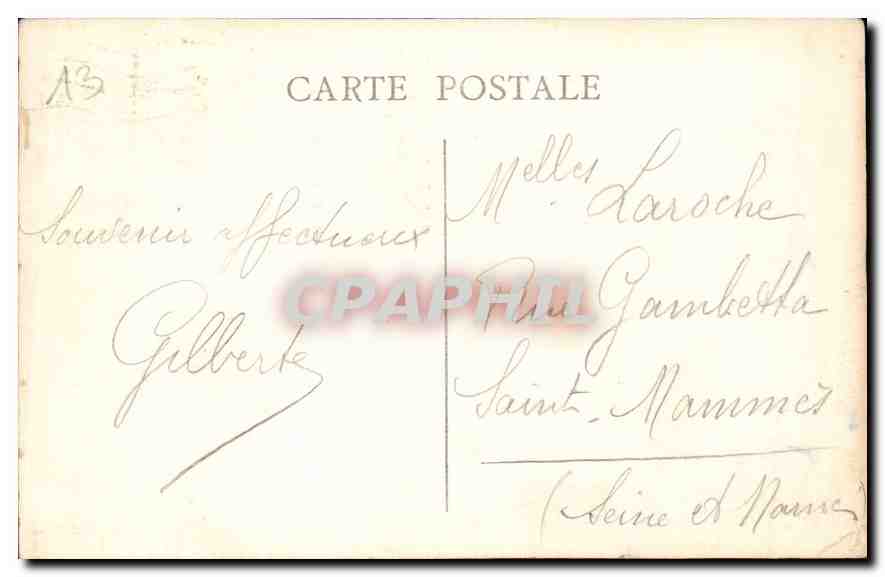 A3
CARTE POSTALE
Souvenir affectueux
Gilberte
Melles Laroche
Rue Gambetta
Saint-Mammès
(Seine et Marne)
CPAPHIL